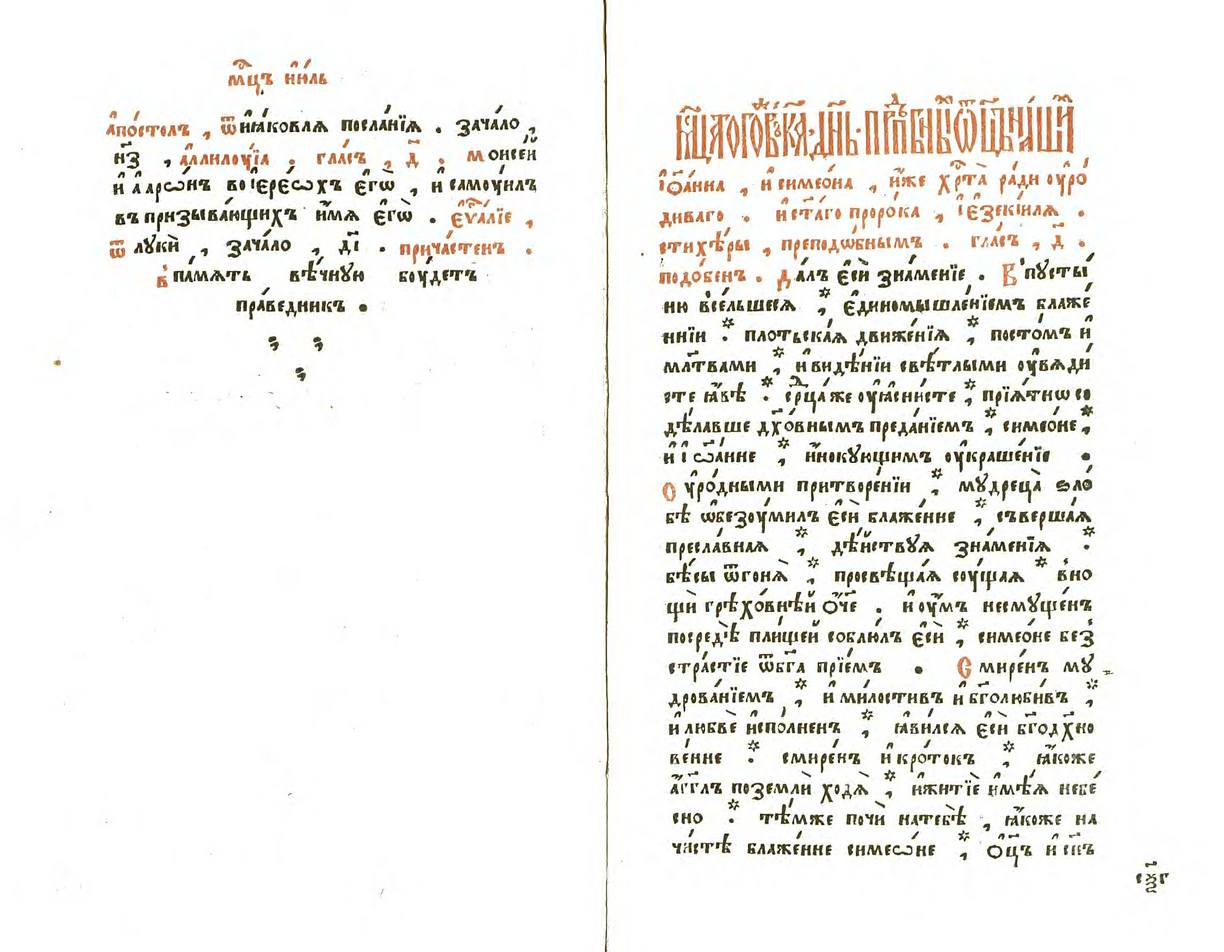 мⷭ҇цъ і҆ю́ль
А҆по́столъ , ѿи҆ꙗ́ковлѧ посла́нїѧ . зача́ло ,
н҃з , а҆ллилꙋ́їа . гла́съ , д҃ . Моисе́й
и҆ а҆арѡ́нъ во і҆ере́ѡхъ є҆гѡ̀ , и҆ самои́лъ
въ призыва́ющихъ и҆́мѧ є҆гѡ̀ . є҆ѵⷢ҇а́лїе ,
ѿ лꙋкѝ , зача́ло , д҃і . прича́стенъ .
в па́мѧть вѣ́чнꙋю боу́детъ
пра́ведникъ .
і҆ѡа́нна , и҆ симео́на , и҆́же хрⷭ҇та̀ ра́ди оу҆ро́
диваго . и҆ ст҃а́го проро́ка , і҆езекі́илѧ .
стихе́ры , преподѡ́бнымъ . гла́съ , д҃ .
подо́бенъ . Да́лъ є҆сѝ зна́менїе . В пꙋсты́
ню все́льшесѧ , є҆диномышле́нїемъ блаже́
ннїи . пло́тьскаѧ движе́нїѧ , посто́мъ и҆
мл҃твами , и҆ видѣ́нїи свѣ́тлыми оу҆вѧди́
сте ꙗ҆́вѣ . срⷣца же оу҆ꙗсни́сте , прїѧ́тнѡ со
дѣ́лавше дх҃о́внымъ преда́нїемъ , симео́не ,
и҆ і҆ѡа́нне , и҆́нокꙋющимъ оу҆краше́нїе .
Оу҆ро́дными притворе́нїи , мꙋдреца̀ ѕло́
бѣ ѡ҆безоу́милъ є҆сѝ блаже́нне , съверша́ѧ
пресла́внаѧ , дѣ́йствꙋѧ зна́менїѧ .
бѣ́сы ѿгонѧ̀ , просвѣща́ѧ соу́щаѧ вно
щѝ грѣхо́внѣй ѻ҆́ч҃е . и҆ оу҆́мъ несмꙋще́нъ
посредѣ̀ пли́щей соблю́лъ є҆сѝ , симео́не без̾
стра́стїе ѿбг҃а прїе́мъ . Смире́нъ мꙋ
дрова́нїемъ , и҆ ми́лостивъ и҆ бг҃олюби́въ ,
и҆ любвѐ и҆спо́лненъ , ꙗ҆ви́лсѧ є҆сѝ бг҃одх҃но
ве́нне . смире́нъ и҆ кро́токъ , ꙗ҆́коже
а҆́гг҃лъ поземлѝ ходѧ̀ , и҆ житїѐ и҆мѣ́ѧ небе́
сно . тѣ́мже почѝ натебѣ̀ , ꙗ҆́коже на
чи́стѣ блаже́нне симеѡ́не , ѻ҆ц҃ъ и҆ сн҃ъ